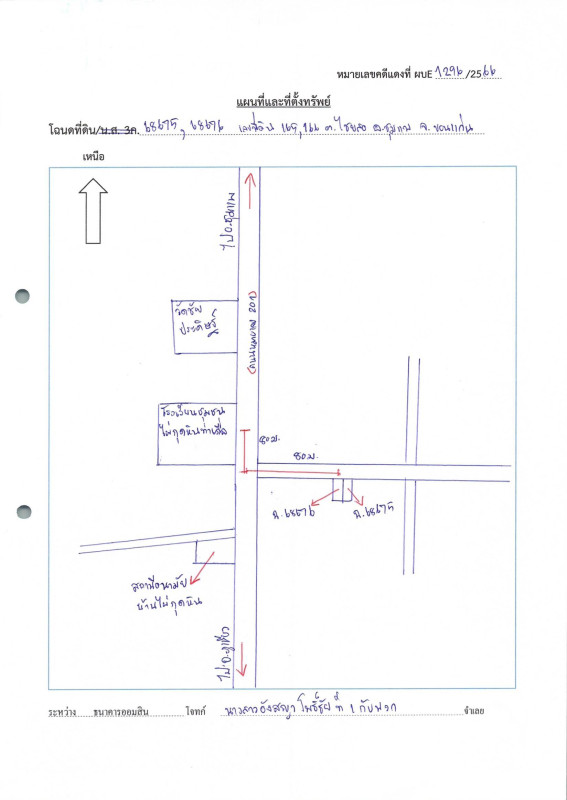 หมายเลขคดีแดงที่ ผบE 1296 /2566
แผนที่และที่ตั้งทรัพย์
โฉนดที่ดิน/น.ส. 3ก. 68675, 68676 เลขที่ดิน 165, 166 ต.ไชยสอ อ.ชุมแพ จ.ขอนแก่น
เหนือ
ไป อ.ชุมแพ
(ถนนหมายเลข 201)
วัดชัย
ประดิษฐ์
โรงเรียนชุมชน
ไผ่กุดหินท่าเสี้ยว
80ม.
80ม.
ฉ.68676
ฉ.68675
สถานีอนามัย
บ้านไผ่กุดหิน
ไป อ.ภูเขียว
ระหว่าง ธนาคารออมสิน โจทก์ นางสาวอังสญา โพธิ์ชัย ที่ 1 กับพวก จำเลย